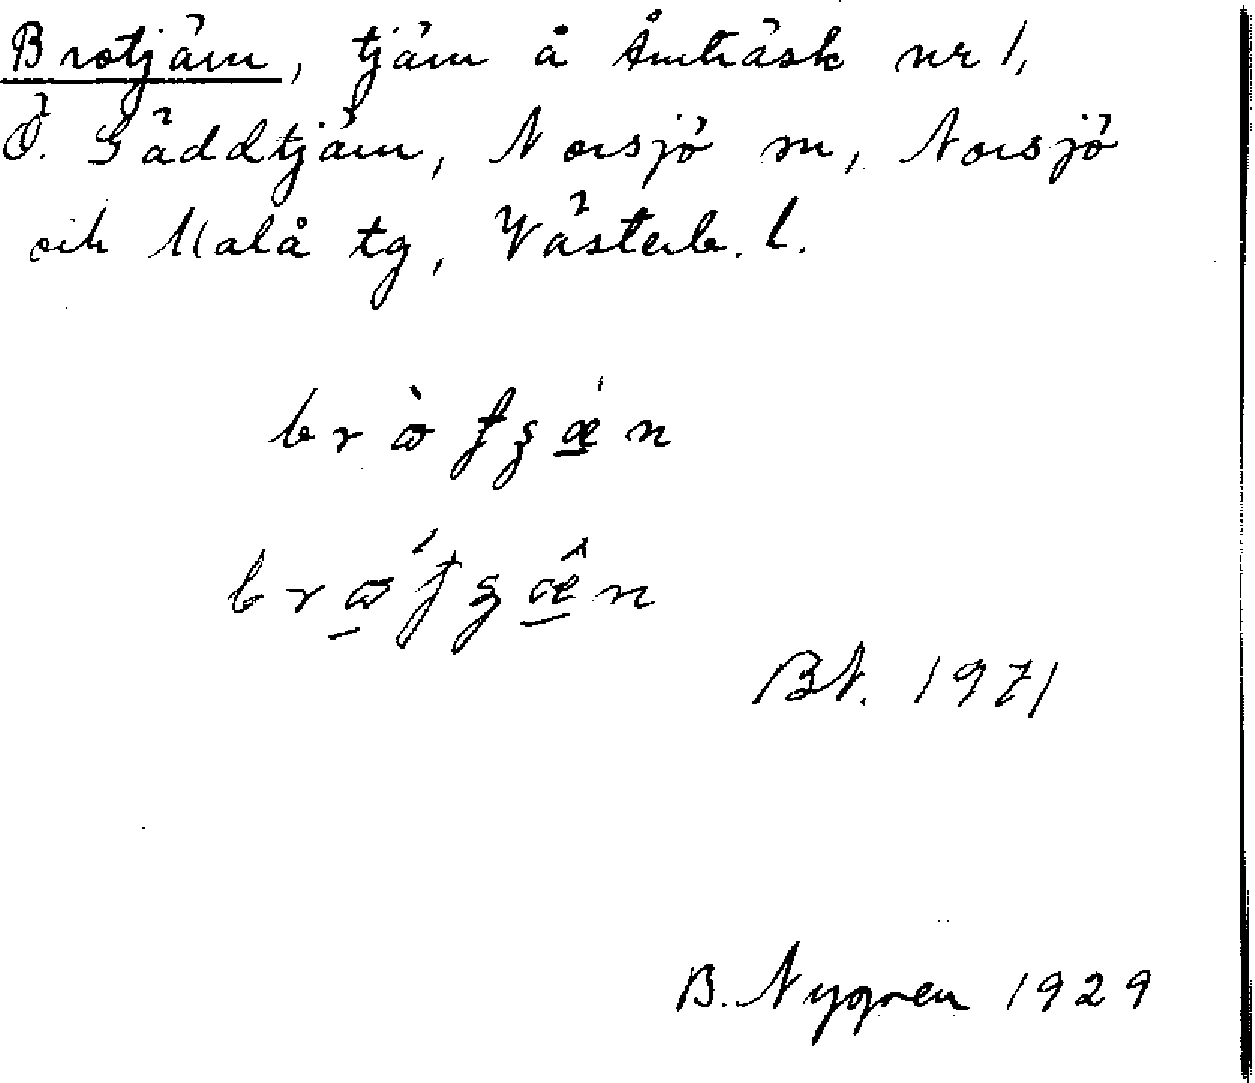 Brotjärn, tjärn å Åmträsk nr 1,
Ö. Gäddtjärn, Norsjö sn, Norsjö
och Malå tg, Västerb. l.
BN. 1971
B. Nygren 1929